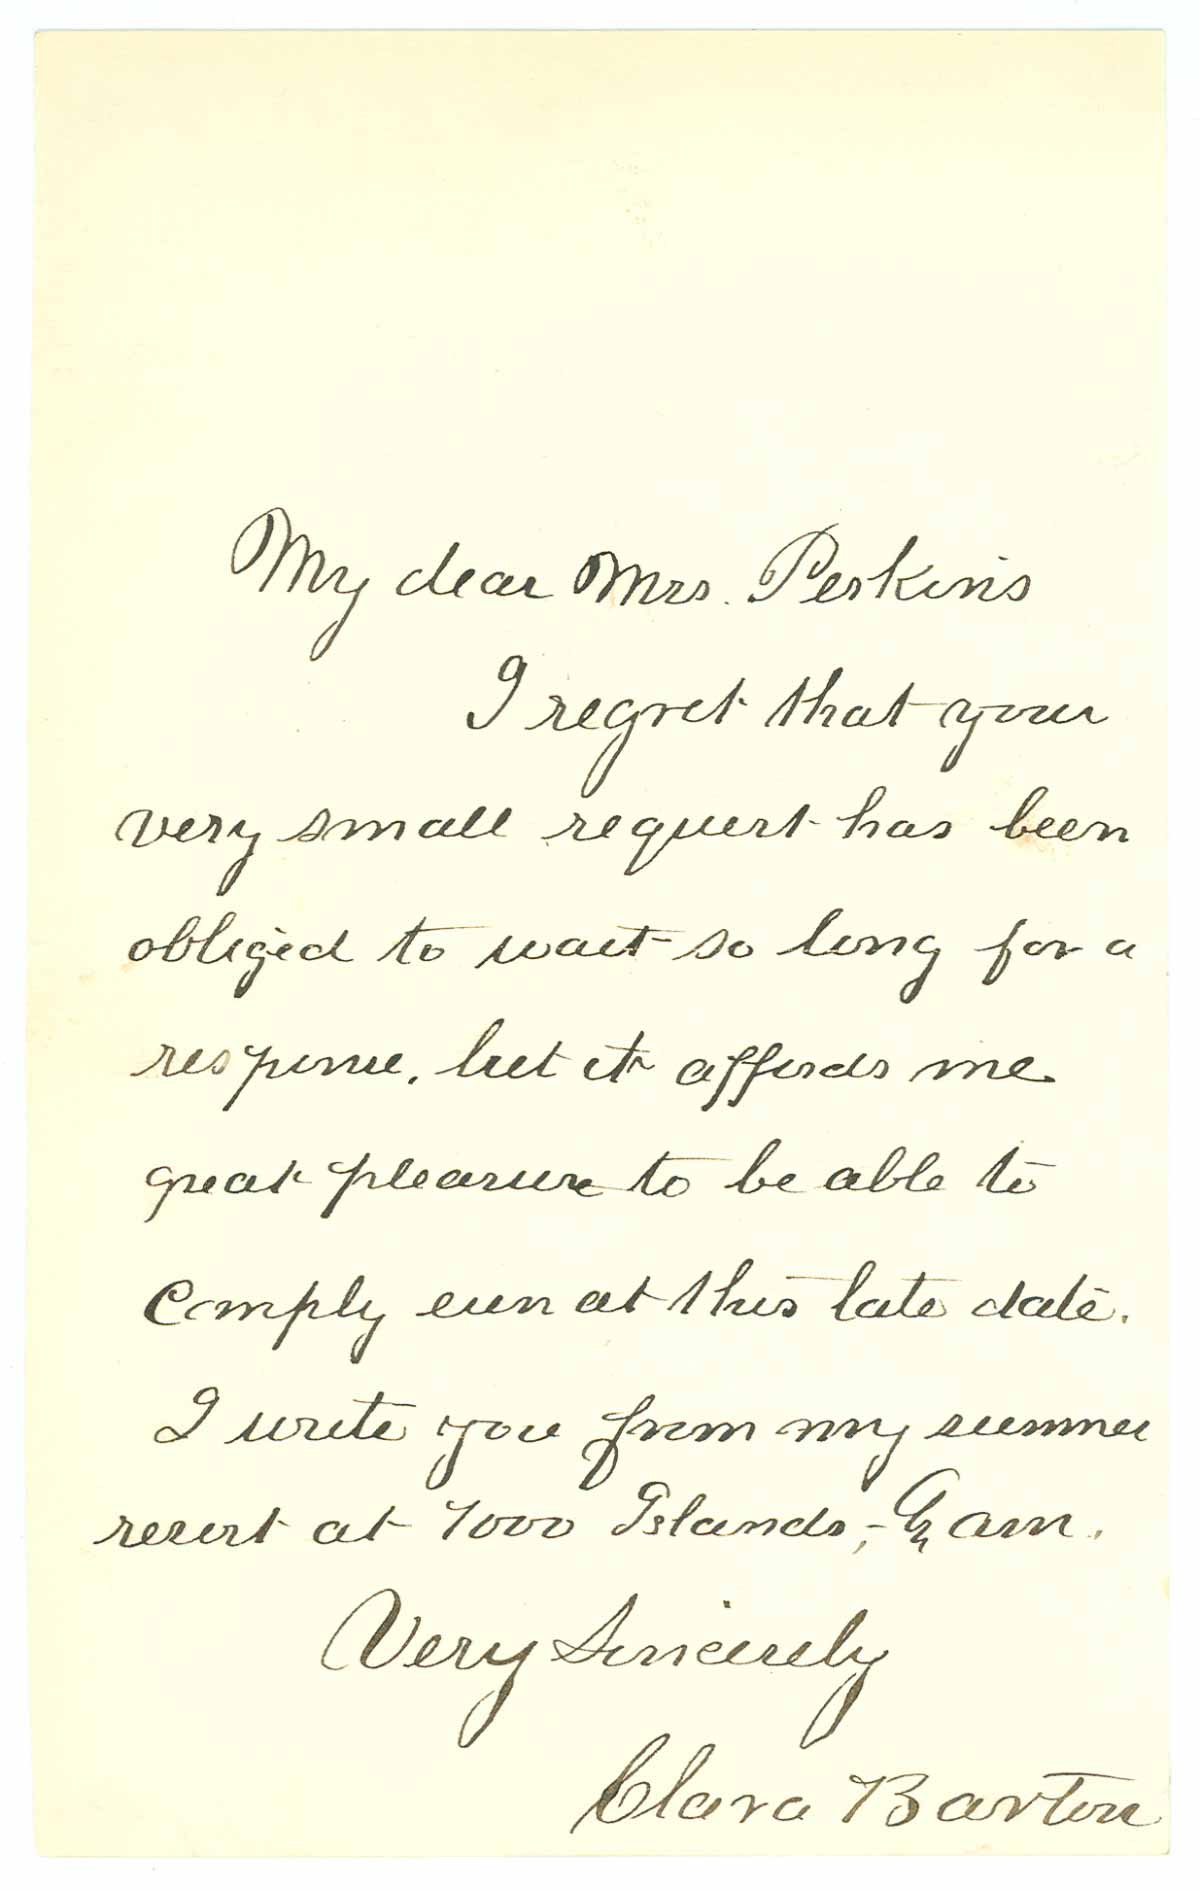 My dear Mrs. Perkins
I regret that your
very small request has been
obliged to wait so long for a
response. but it affords me
great pleasure to be able to
comply even at this late date.
I write you from my summer
resort at 1000 Islands,-
Very Sincerely
Clara Barton